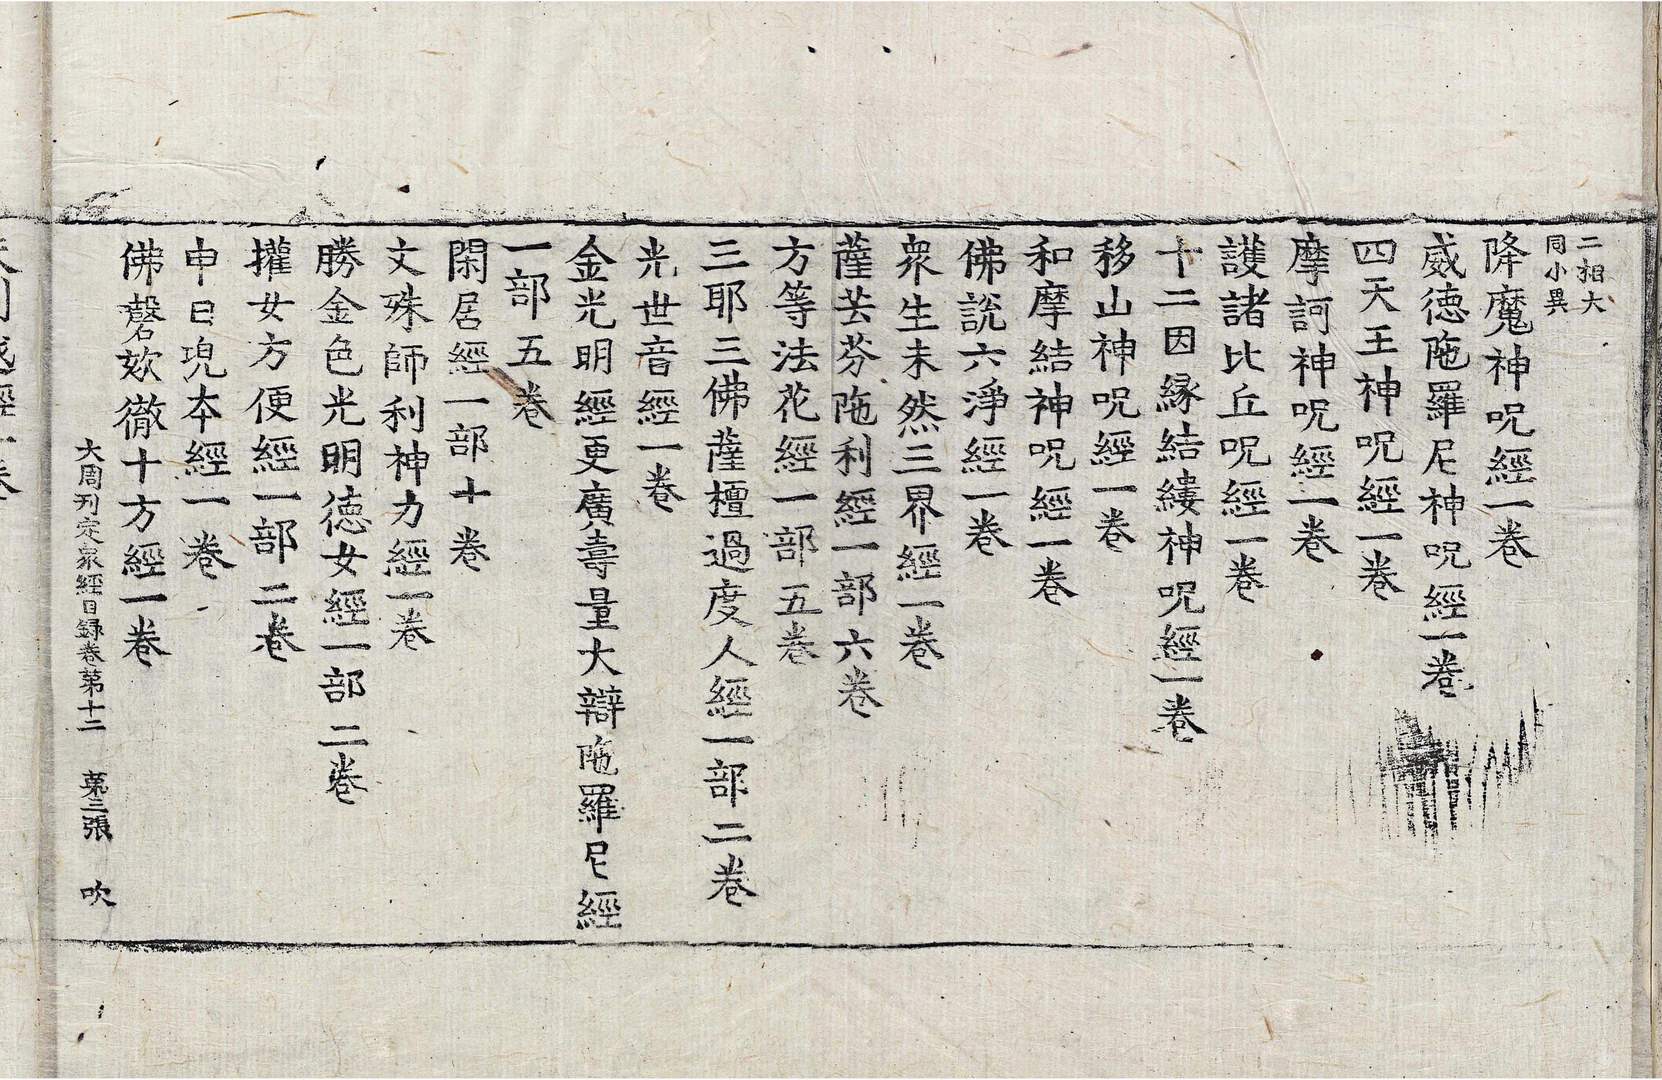 二相大
同小異
降魔神呪經一卷
威徳陁羅尼神呪經一卷
四天王神呪經一卷
摩訶神呪經一卷
護諸比丘呪經一卷
十二因縁結縷神呪經一卷
移山神呪經一卷
和摩結神呪經一卷
佛說六淨經一卷
衆生未然三界經一卷
薩芸芬陁利經一部六卷
方等法花經一部五卷
三耶三佛薩檀過度人經一部二卷
光世音經一卷
金光明經更廣壽量大辯陁羅尼經
一部五卷
閑居經一部十卷
文殊師利神力經一卷
勝金色光明徳女經一部二卷
權女方便經一部二卷
申日兜本經一卷
佛磬欬徹十方經一卷
大周刊定衆經目録卷第十二 第三張 吹